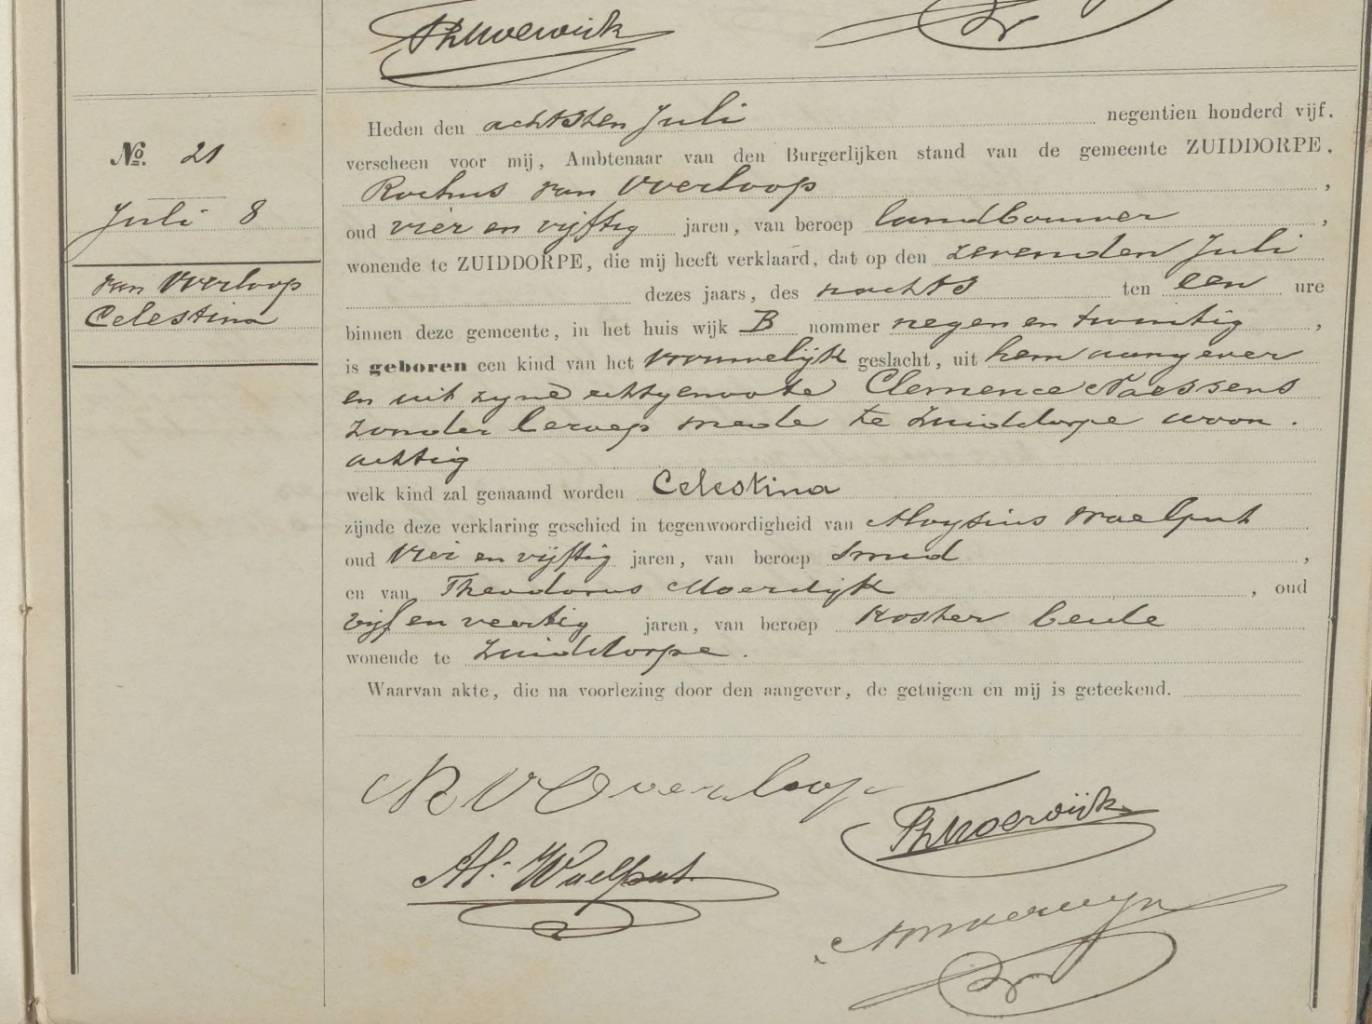 Nº. 21
Juli 8
van Overloop
Celestina
Heden den achtsten Juli negentien honderd vijf.
verscheen voor mij, Ambtenaar van den Burgerlijken stand van de gemeente ZUIDDORPE.
Rochus van Overloop,
oud vier en vijftig jaren, van beroep landbouwer,
wonende te ZUIDDORPE, die mij heeft verklaard, dat op den zevenden Juli
dezes jaars, des nachts ten een ure
binnen deze gemeente, in het huis wijk B nommer negen en twintig,
is geboren een kind van het vrouwelijk geslacht, uit hem aangever
en uit zijne echtgenoote Clemence Naessens
zonder beroep mede te Zuiddorpe woon.
achtig
welk kind zal genaamd worden Celestina
zijnde deze verklaring geschied in tegenwoordigheid van Aloysius Waelput
oud vier en vijftig jaren, van beroep smid,
en van Theodorus Moerdijk, oud
vijf en veertig jaren, van beroep koster beide
wonende te Zuiddorpe.
Waarvan akte, die na voorlezing door den aangever, de getuigen en mij is geteekend.
R V Overloop
Th Moerdijk
Al. Waelput